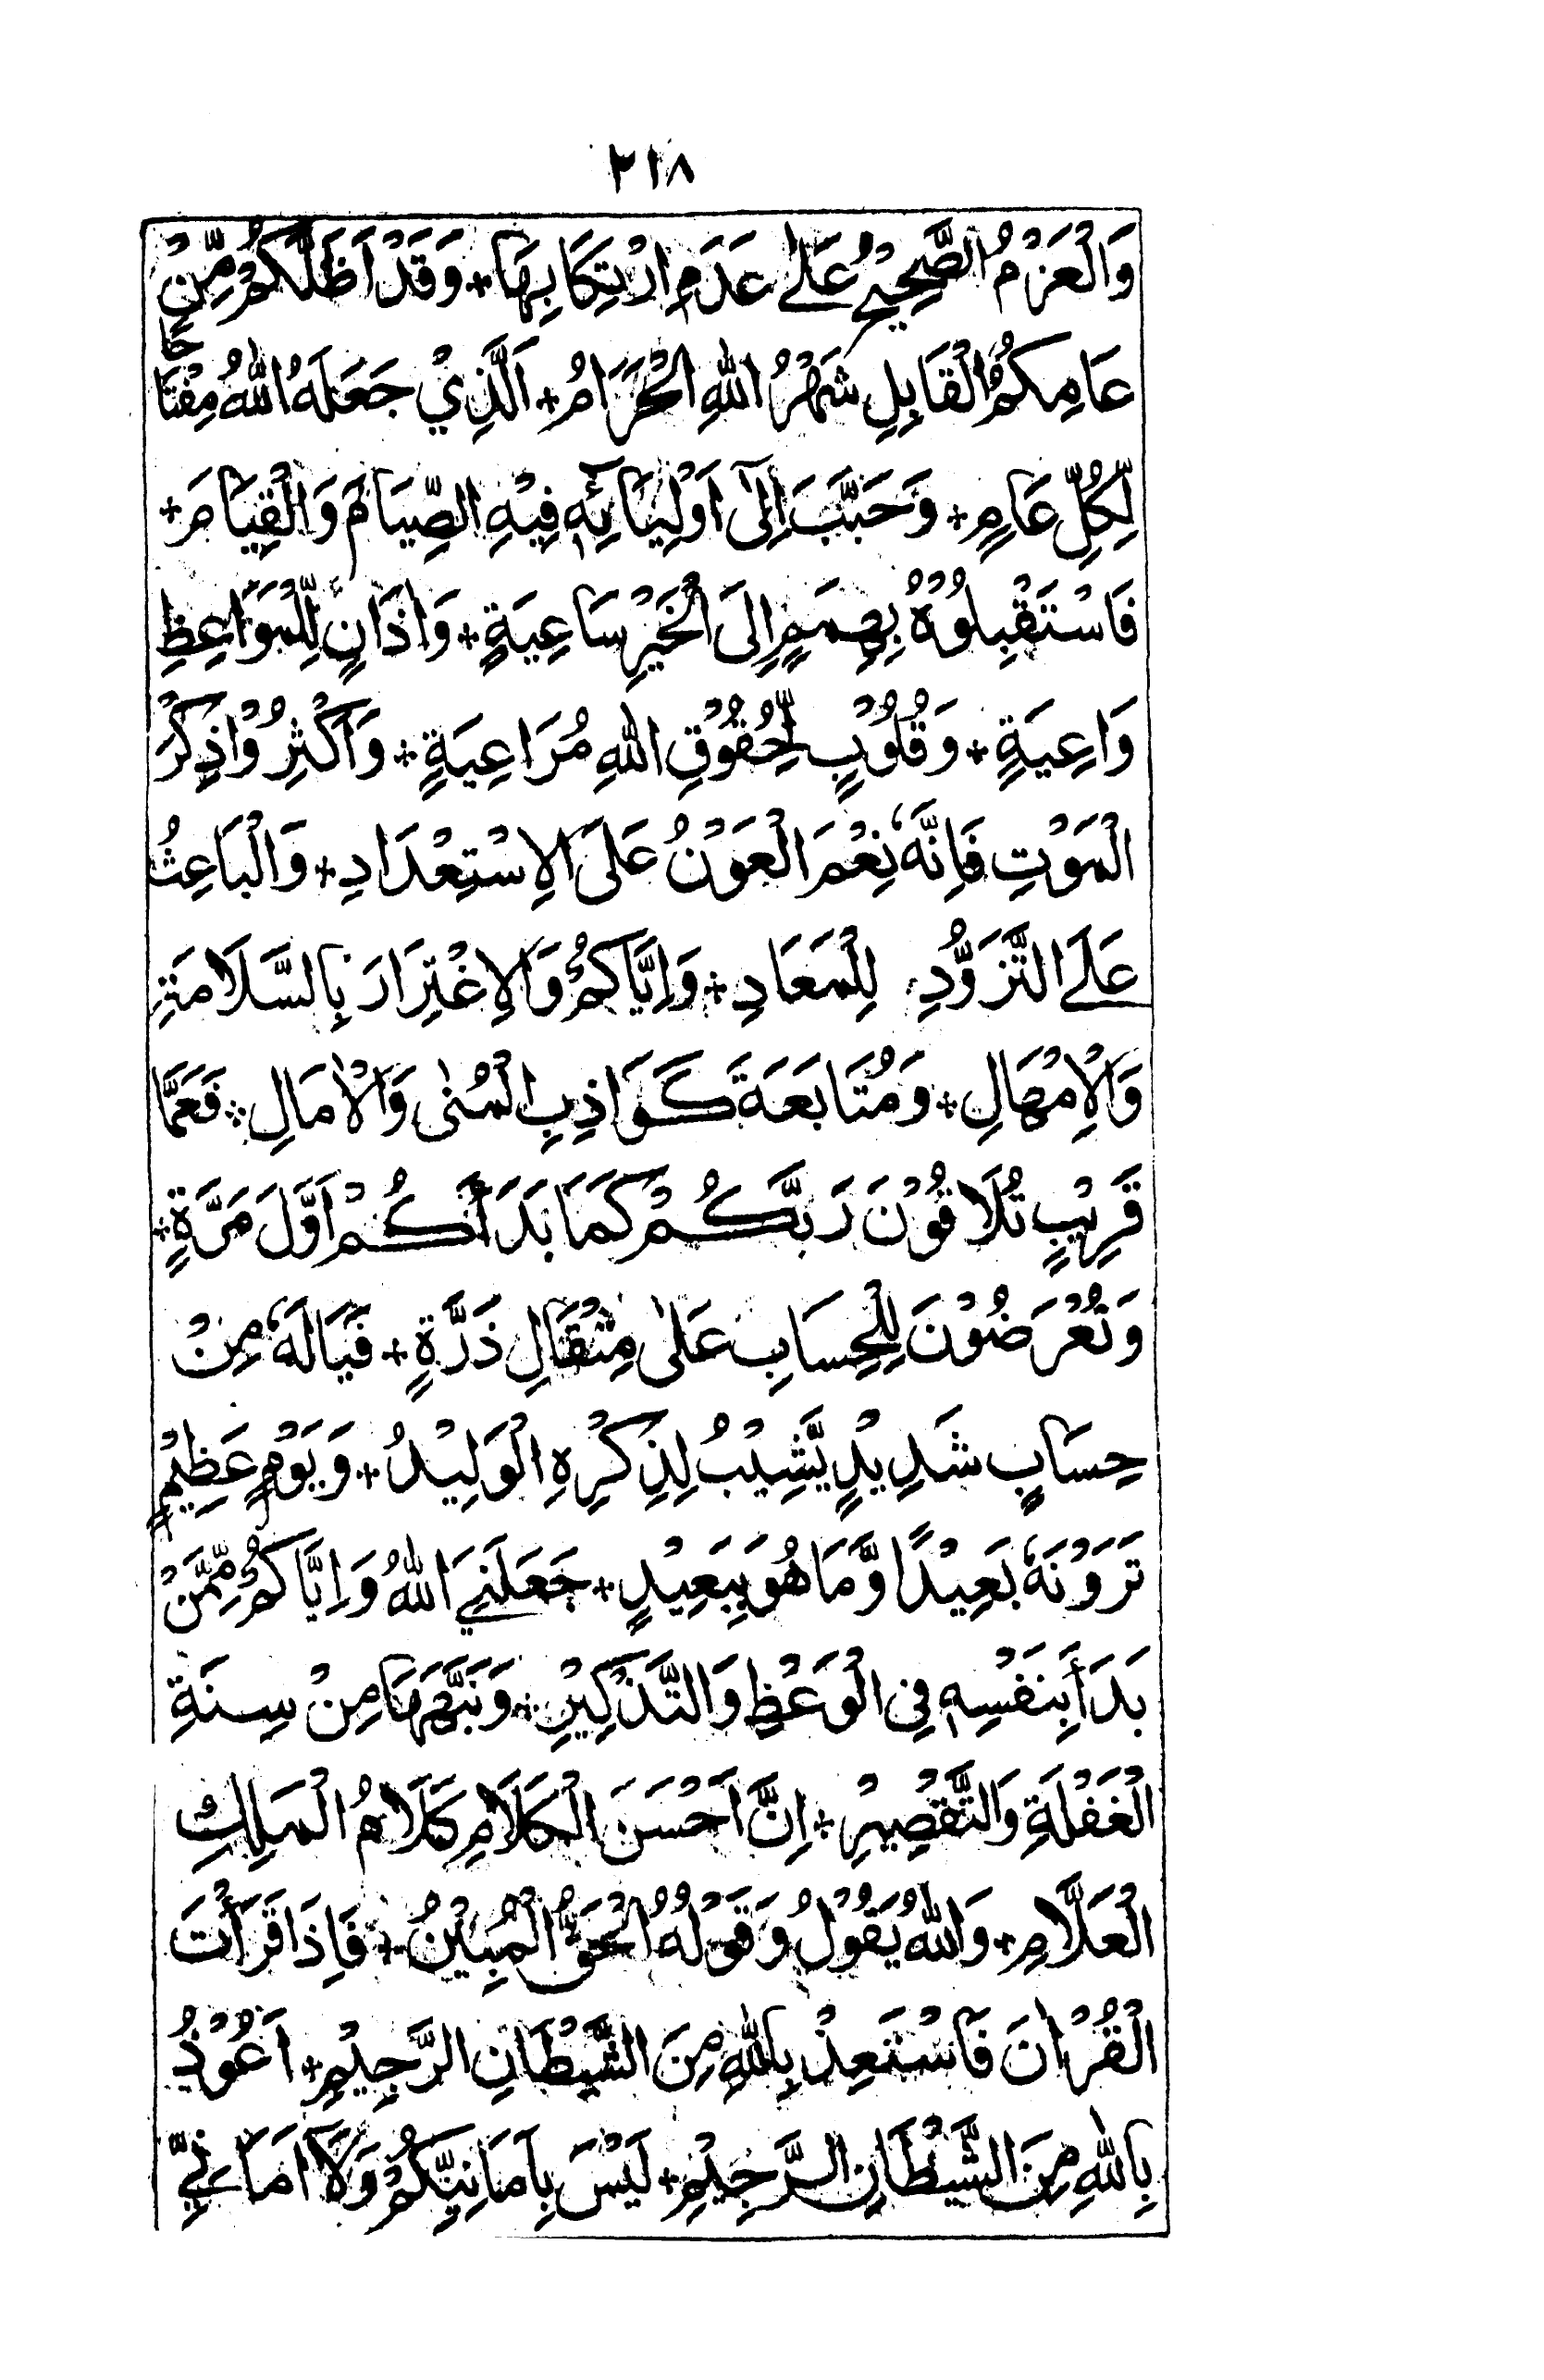 ٢١٨
وَالْعَزْمُ الصَّحِيْحُ عَلٰى عَدَمِ ارْتِكَابِهَا + وَقَدْ اَظَلَّكُمْ مِّنْ
عَامِكُمُ الْقَابِلِ شَهْرُ اللهِ الْحَرَامُ + اَلَّذِيْ جَعَلَهُ اللهُ مِفْتَاحًا
لِّكُلِّ عَامٍ + وَحَبَّبَ اِلٰى اَوْلِيَائِهٖ فِيْهِ الصِّيَامَ وَالْقِيَامَ +
فَاسْتَقْبِلُوْهُ بِهِمَمٍ اِلَى الْخَيْرِ سَاعِيَةٍ + وَاٰذَانٍ لِّلْمَوَاعِظِ
وَاعِيَةٍ + وَقُلُوْبٍ لِّحُقُوْقِ اللهِ مُرَاعِيَةٍ + وَاَكْثِرُوْا ذِكْرَ
الْمَوْتِ فَاِنَّهٗ نِعْمَ الْعَوْنُ عَلَى الِاسْتِعْدَادِ + وَالْبَاعِثُ
عَلَى التَّزَوُّدِ لِلْمَعَادِ + وَاِيَّاكُمْ وَالِاغْتِرَارَ بِالسَّلَامَةِ
وَالْاِمْهَالِ + وَمُتَابَعَةَ كَوَاذِبِ الْمُنٰى وَالْاٰمَالِ + فَعَمَّا
قَرِيْبٍ تُلَاقُوْنَ رَبَّكُمْ كَمَا بَدَأَكُمْ اَوَّلَ مَرَّةٍ +
وَتُعْرَضُوْنَ لِلْحِسَابِ عَلٰى مِثْقَالِ ذَرَّةٍ + فَيَالَهٗ مِنْ
حِسَابٍ شَدِيْدٍ يَّشِيْبُ لِذِكْرِهِ الْوَلِيْدُ + وَيَوْمٍ عَظِيْمٍ
تَرَوْنَهٗ بَعِيْدًا وَّمَا هُوَ بِبَعِيْدٍ + جَعَلَنِيَ اللهُ وَاِيَّاكُمْ مِّمَّنْ
بَدَأَ بِنَفْسِهٖ فِي الْوَعْظِ وَالتَّذْكِيْرِ + وَنَبَّهَهَا مِنْ سِنَةِ
الْغَفْلَةِ وَالتَّقْصِيْرِ + اِنَّ اَحْسَنَ الْكَلَامِ كَلَامُ الْمَلِكِ
الْعَلَّامِ + وَاللهُ يَقُوْلُ وَقَوْلُهُ الْحَقُّ الْمُبِيْنُ + فَاِذَا قَرَأْتَ
الْقُرْاٰنَ فَاسْتَعِذْ بِاللهِ مِنَ الشَّيْطَانِ الرَّجِيْمِ + اَعُوْذُ
بِاللهِ مِنَ الشَّيْطَانِ الرَّجِيْمِ + لَيْسَ بِاَمَانِيِّكُمْ وَلَا اَمَانِيِّ